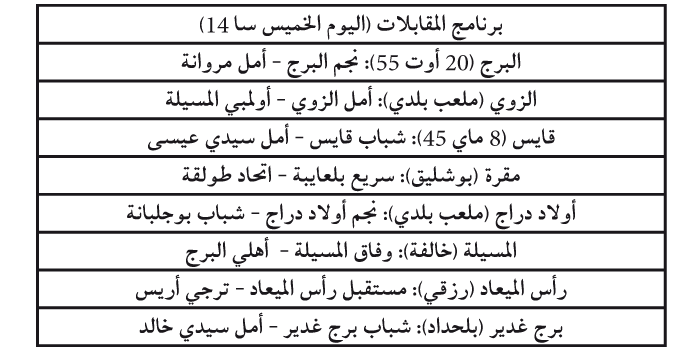 برنامج المقابلات (اليوم الخميس سا 14)
البرج (20 أوت 55): نجم البرج - أمل مروانة
الزوي (ملعب بلدي): أمل الزوي - أولمبي المسيلة
قايس (8 ماي 45): شباب قايس - أمل سيدي عيسى
مقرة (بوشليق): سريع بلعايبة - اتحاد طولقة
أولاد دراج (ملعب بلدي): نجم أولاد دراج - شباب بوجلبانة
المسيلة (خالفة): وفاق المسيلة - أهلي البرج
رأس الميعاد (رزقي): مستقبل رأس الميعاد - ترجي أريس
برج غدير (بلحداد): شباب برج غدير - أمل سيدي خالد